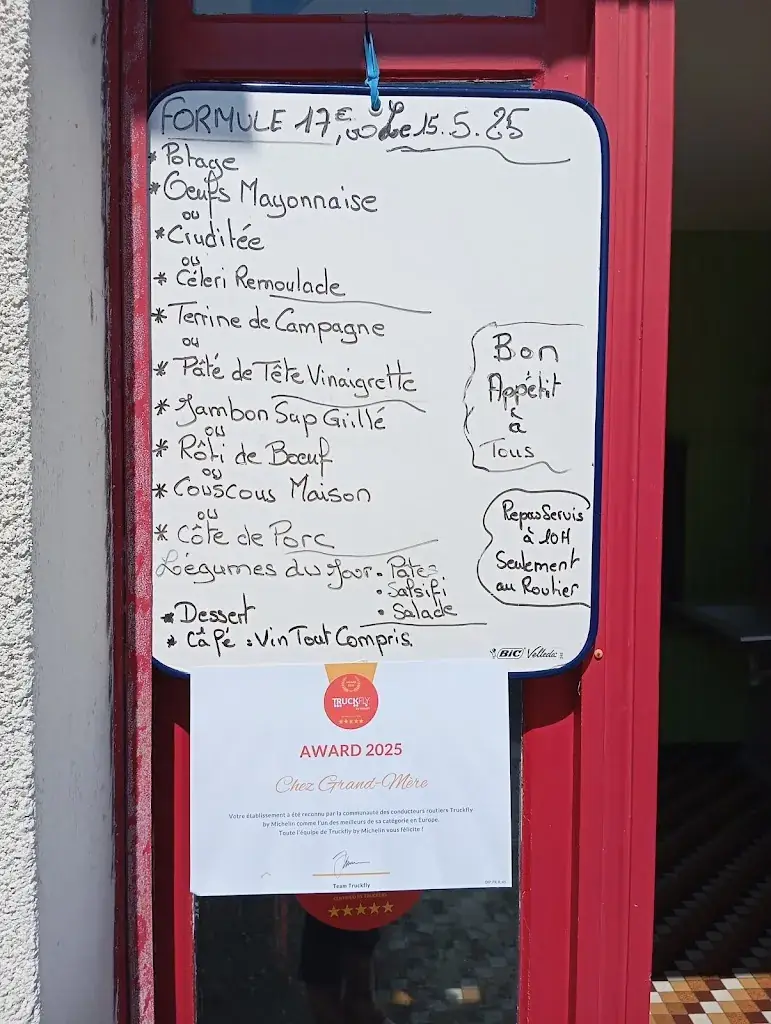 FORMULE 17€,00 Le 15.5.25
* Potage
* Oeufs Mayonnaise
ou
* Cruditée
ou
* Céleri Remoulade
* Terrine de Campagne
ou
* Pâté de Tête Vinaigrette
* Jambon Sup Grillé
ou
* Rôti de Bœuf
ou
* Couscous Maison
ou
* Côte de Porc
Légumes du Jour • Pates
• Salsifi
• Salade
* Dessert
* Câfé : Vin Tout Compris.
Bon
Appétit
à
Tous
Repas Servis
à 10H
Seulement
au Routier
BIC Velleda
TRUCKFLY
AWARD 2025
Chez Grand-Mère
Votre établissement a été reconnu par la communauté des conducteurs routiers Truckfly
by Michelin comme l'un des meilleurs de sa catégorie en Europe.
Toute l'équipe de Truckfly by Michelin vous félicite !
Team Truckfly